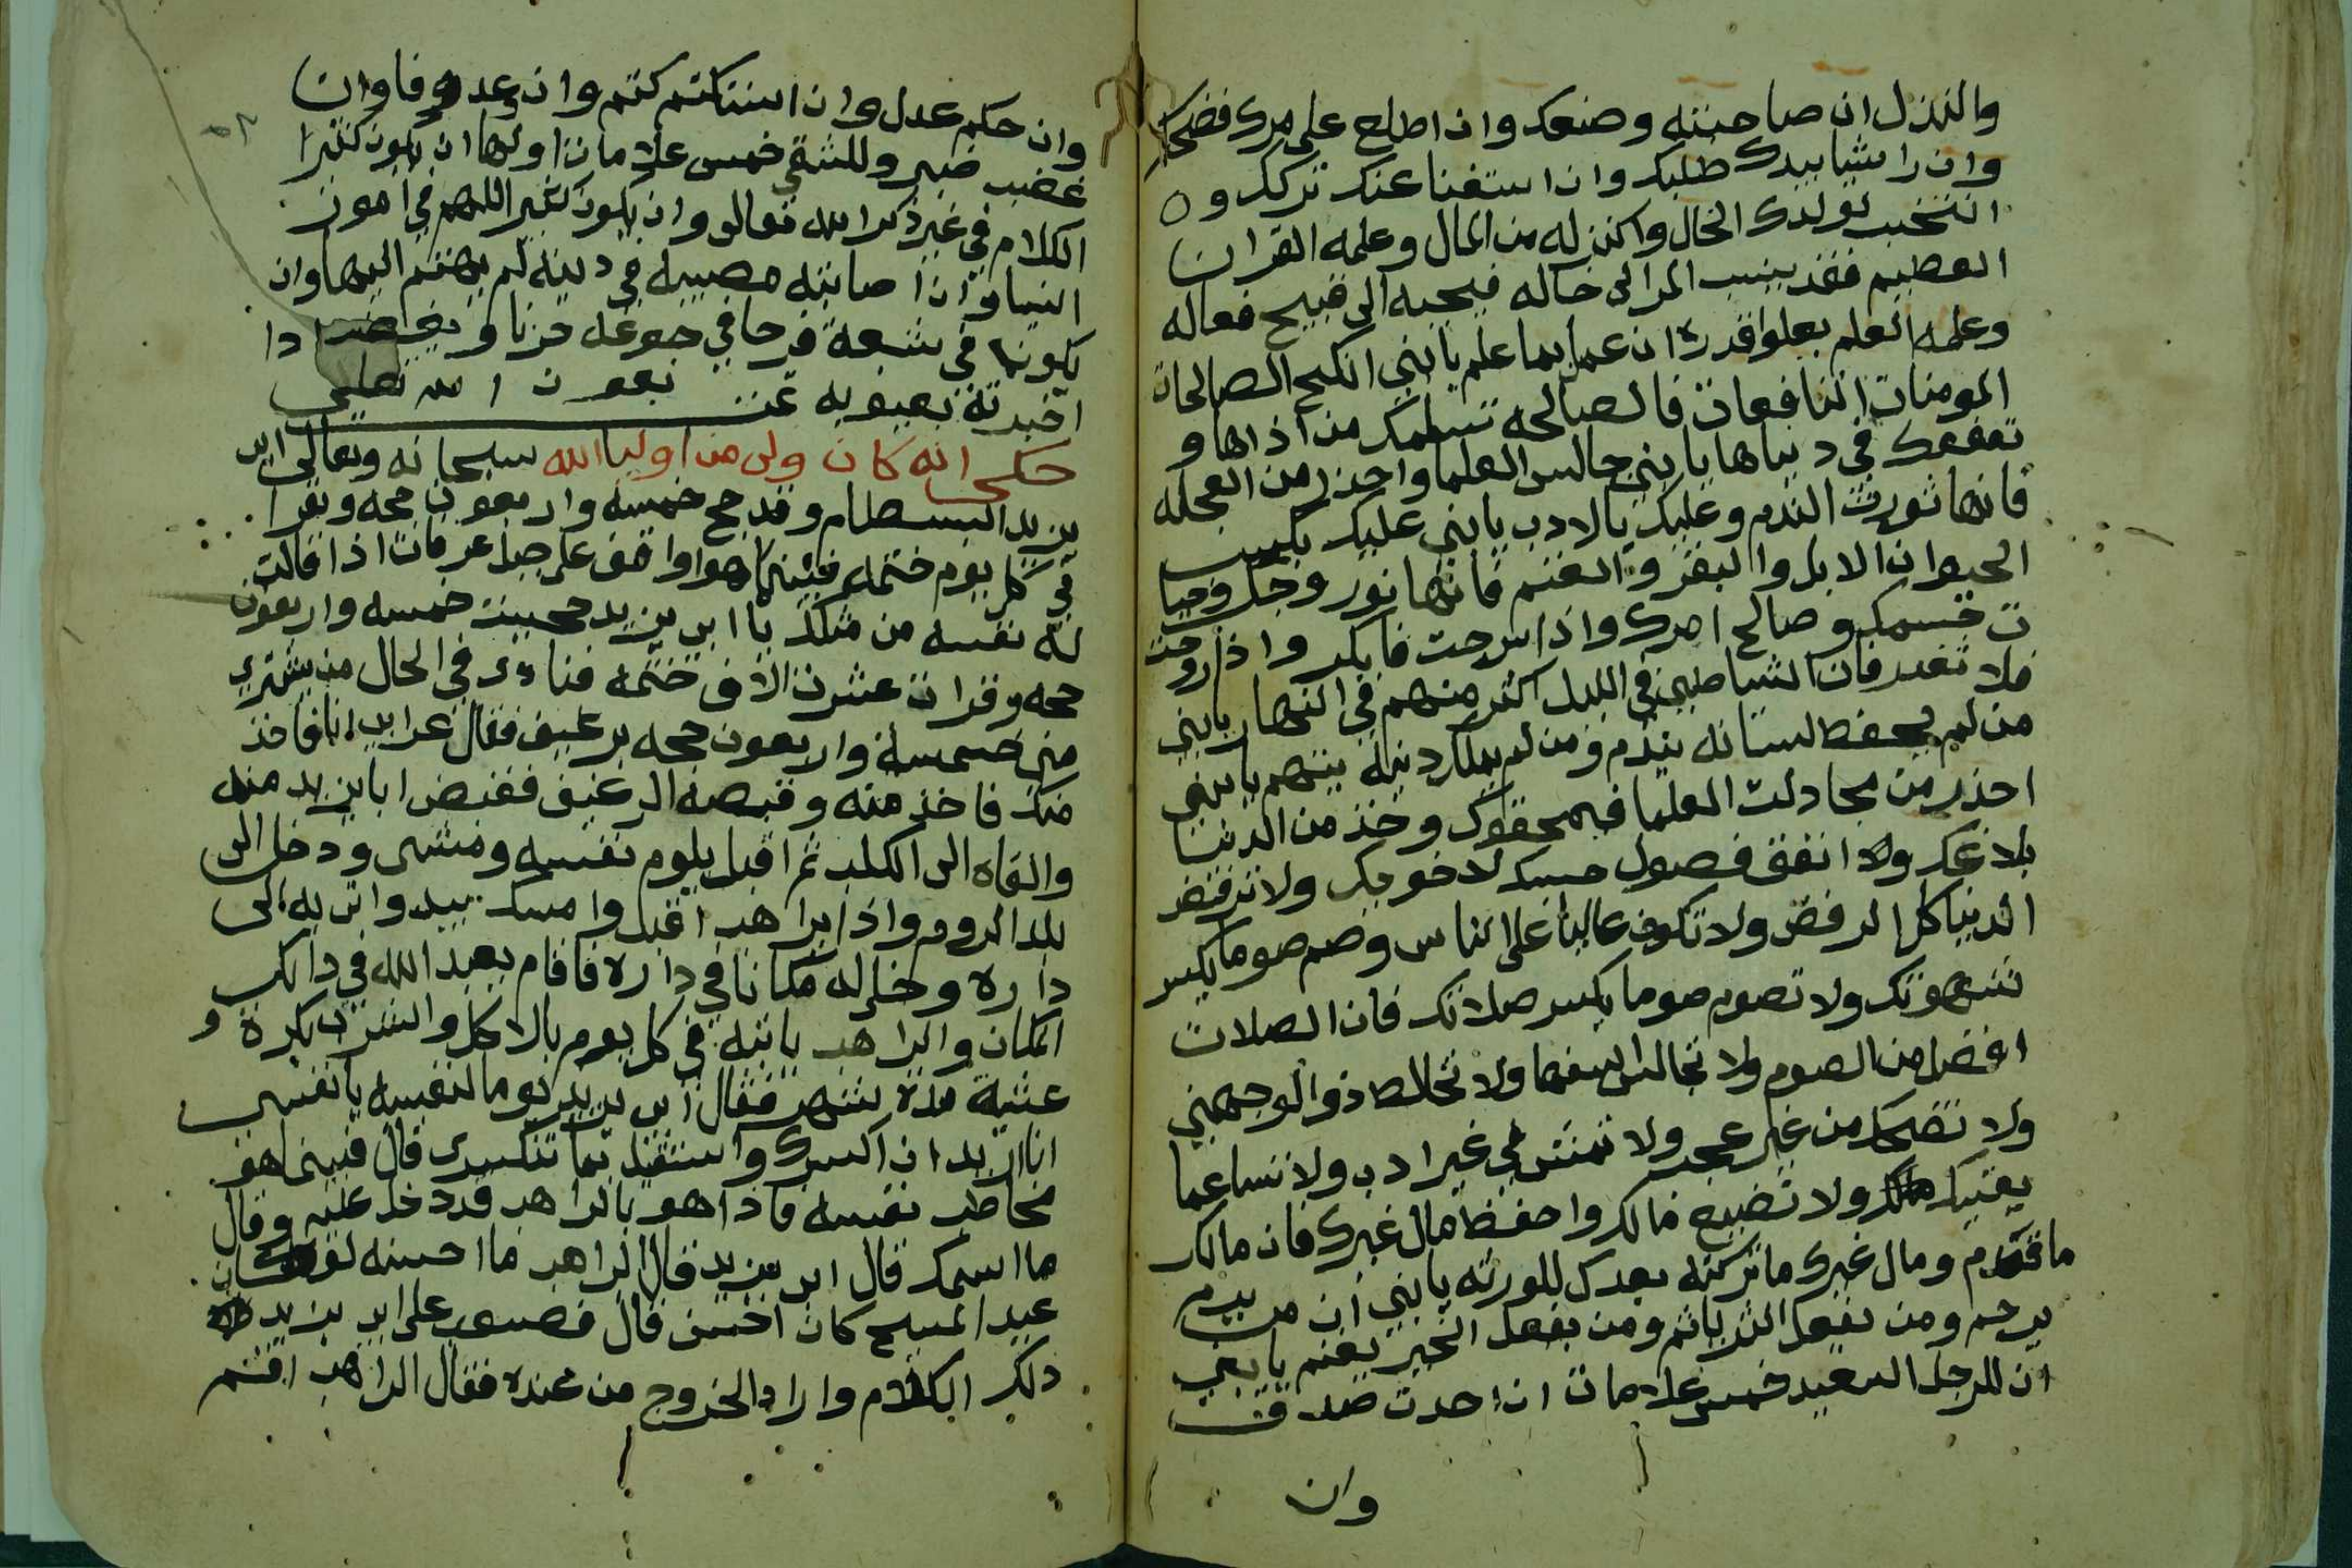 والنذل ان صاحبته وضعك وان اطلع على سرك فضحك
وان را شيا بيدك طلبك وان استغنا عنك تركك و ٥
انتخب لولدك الخال واكنز له من المال وعلمه القران
العظيم فقد ينسب المر الى خاله فيجبه الى قبيح فعاله
وعلمه العلم يعلوا قدره ان عمل بما علم يابني انكح الصالحات
المومنات النافعات فالصالحه تسلمك من اذاها و
تنفعك في دنياها يابني جالس العلما واحذر من العجله
فانها تورث الندم وعليك بالادب يابني عليك بكسب
الحيوان الابل والبقر والغنم فانها نور وجك وحيا
ت قسمك وصالح امرك واذا سرحت فابكر واذا روحت
فلا تغدر فان الشياطين في الليل اكثر منهم في النهار يابني
من لم يحفظ لسانه يندم ومن لم يملك دينه يتهم يابني
احذر من مجادلت العلما فيمحقوك وخذ من الدنيا
بلاغك ولا انفق فصول حسبك لاخوتك ولا ترفض
الدنيا كل الرفض ولا تكون عاليا على الناس وصم صوما يكسر
شهوتك ولا تصوم صوما يكسر صلاتك فان الصلات
افضل من الصوم ولا تجالس السفها ولا تخالط ذو الوجهين
ولا تضحك من غير عجب ولا تمشي في غير ادب ولا تسا عما
يعنيك ولا تضيع مالك واحفظ مال غيرك فان مالك
ما قدم ومال غيرك ما تركته بعدك للورثه يابني ان من يرحم
يرحم ومن يفعل الشر ياثم ومن يفعل الخير يغنم يابني
ان للرجل السعيد خمس علامات ان احدث صدقت
وان
وان حكم عدل وان استكتم كتم وان وعد وفا وان
غضب صبر وللشقي خمس علامات اولها ان يكون كثيرا
الكلام في غير ذكر الله تعالى وان يكون كثير اللهم في امور
الدنيا وان اصابته مصيبه في دينه لم يهتم اليها وان
يكون في شبعه فرحا في جوعه حزنا و اذا
اخبرته بعيوبه
حكي انه كان ولي من اوليا الله سبحانه وتعالى ابي
يزيد البسطام وقد حج خمسه واربعون حجه ويقرا
في كل يوم ختمه فبينما هوا واقف على جبل عرفات اذا قالت
له نفسه من مثلك يا ابي يزيد حجيت خمسه واربعون
حجه وقرات عشرت الاف ختمه فنادى في الحال من يشتري
مني خمسه واربعون حجه برغيف فقال عرابي انا فاخذ
منك فاخذ منه وقبصه الرغيف فقبض ابا يزيد منه
والقاه الى الكلب ثم اقبل يلوم نفسه ومشى ودخل الى
بلد الروم واذا براهب اقبل وامسك بيده واتى به الى
داره وخلى له مكانا في داره فاقام يعبد الله في دالك
المكان والراهب ياتيه في كل يوم بالاكل والشرب بكرة و
عشية مدة شهر فقال ابي يزيد يوما لنفسه يا نفسي
انا اريد ان اكسرك تنكسري قال فبينما هو
يخاطب نفسه فاذا هو بالراهب قد دخل عليه وقال
ما اسمك قال ابي يزيد قال الراهب ما احسنه لو كان
عبد المسيح كان احسن قال فصعب على ابي يزيد
دلك الكلام واراد الخروج من عنده فقال الراهب اقم